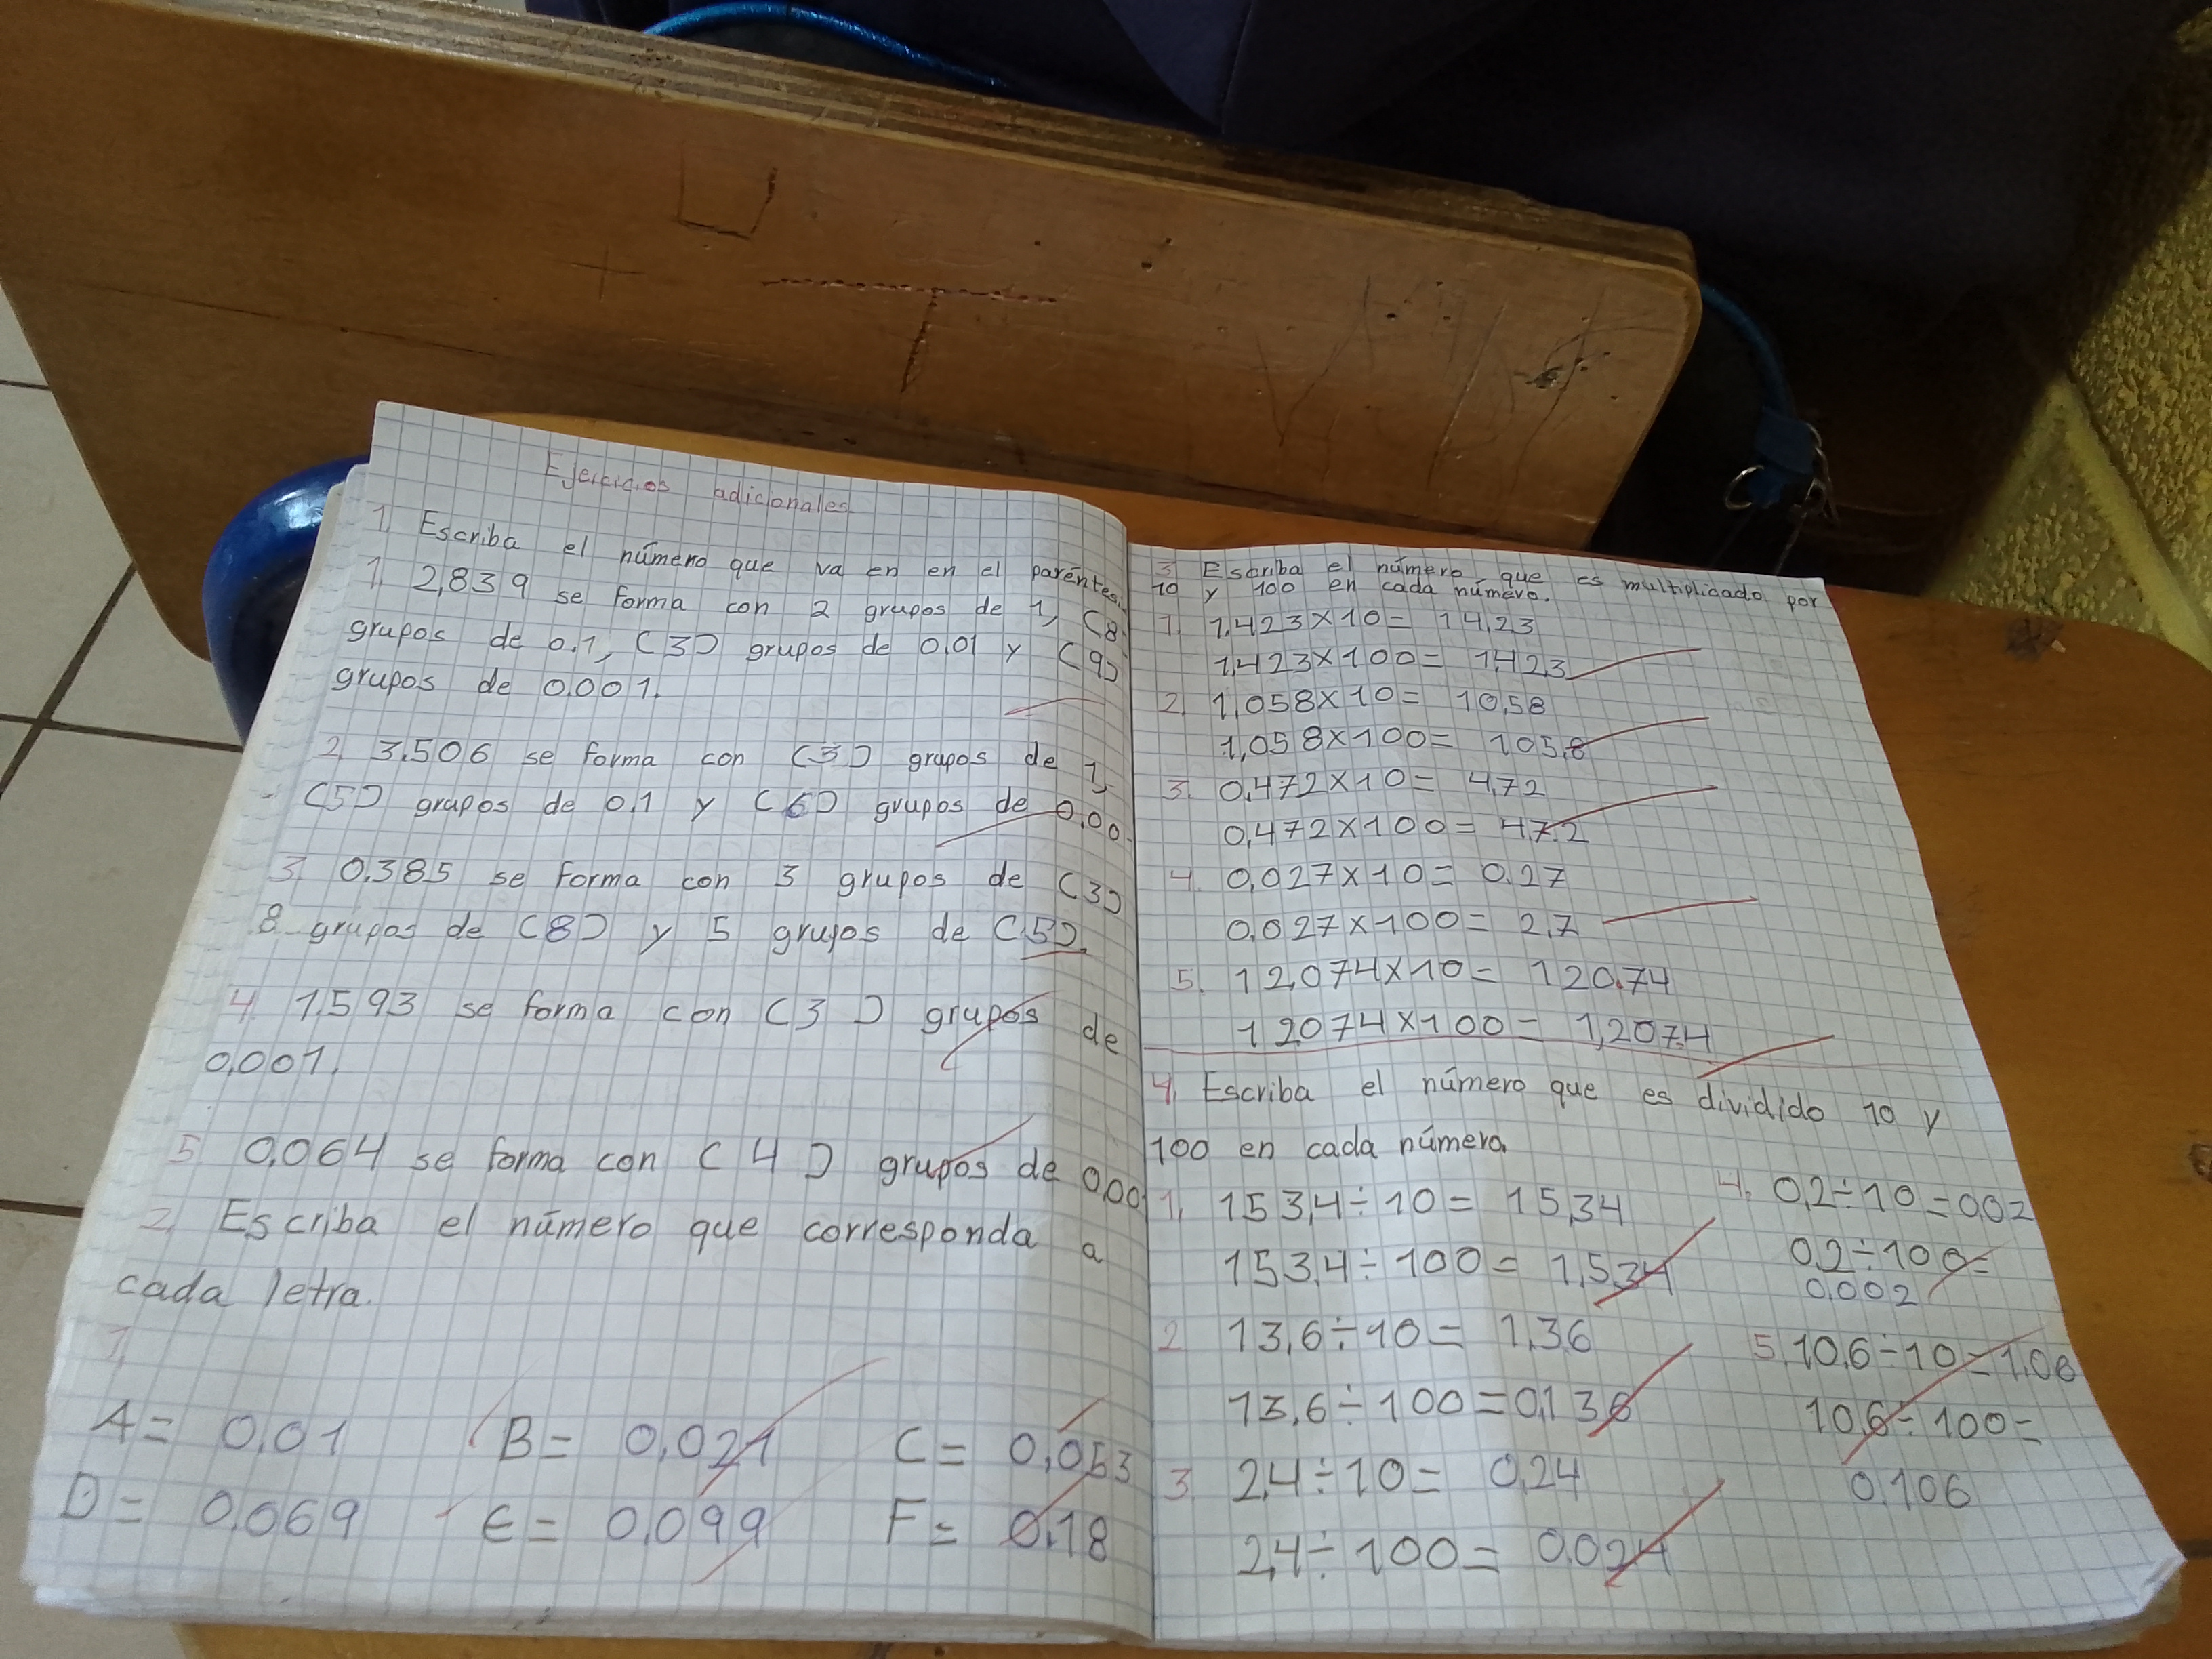 Ejercicios adicionales.
1. Escriba el número que va en en el paréntesis.
1. 2,839 se forma con 2 grupos de 1, (8
grupos de 0.1, (3) grupos de 0.01 y (9)
grupos de 0.001.
2. 3.506 se forma con (3) grupos de 1,
(5) grupos de 0.1 y (6) grupos de 0.00
3. 0.385 se forma con 3 grupos de (3)
8 grupos de (8) y 5 grupos de (5).
4. 1.593 se forma con (3) grupos de
0,001.
5. 0.064 se forma con (4) grupos de 0.00
2. Escriba el número que corresponda a
cada letra.
1.
A= 0,01 B= 0,021 C= 0,053
D= 0.069 E= 0.099 F= 0.18
3. Escriba el número que es multiplicado por
10 y 100 en cada número.
1. 1.423x10= 14,23
1,423x100= 142,3
2. 1,058x10= 10,58
1,058x100= 105,8
3. 0,472x10= 4,72
0,472x100= 47.2
4. 0,027x10= 0.27
0,027x100= 2,7
5. 12,074x10= 120.74
12,074x100= 1,207.4
4. Escriba el número que es dividido 10 y
100 en cada número.
1. 153,4÷10= 15,34
153,4÷100= 1,534
2. 13,6÷10= 1,36
13,6÷100=0,136
3. 2,4÷10= 0,24
2,4÷100= 0.024
4. 0,2÷10=0,02
0,2÷100=
0.002
5. 10,6÷10=1,06
10,6÷100=
0.106